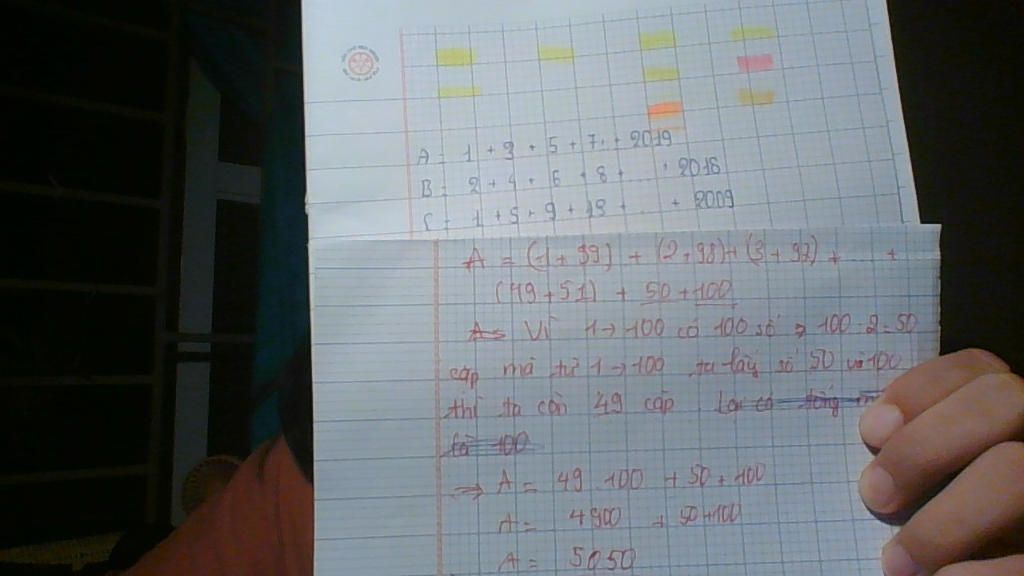 A = 1 + 3 + 5 + 7 + + 2019
B = 2 + 4 + 6 + 8 + ... + 2016
C = 1 + 5 + 9 + 13 + ... + 2009
A = (1 + 99) + (2 + 98) + (3 + 97) + +
(49 + 51) + 50 + 100
Vì 1 → 100 có 100 số ⇒ 100 : 2 = 50
cặp mà từ 1 → 100 ta lấy số 50 và 100
thì ta còn 49 cặp
⇒ A = 49 . 100 + 50 + 100
A = 4900 + 50 + 100
A = 5050